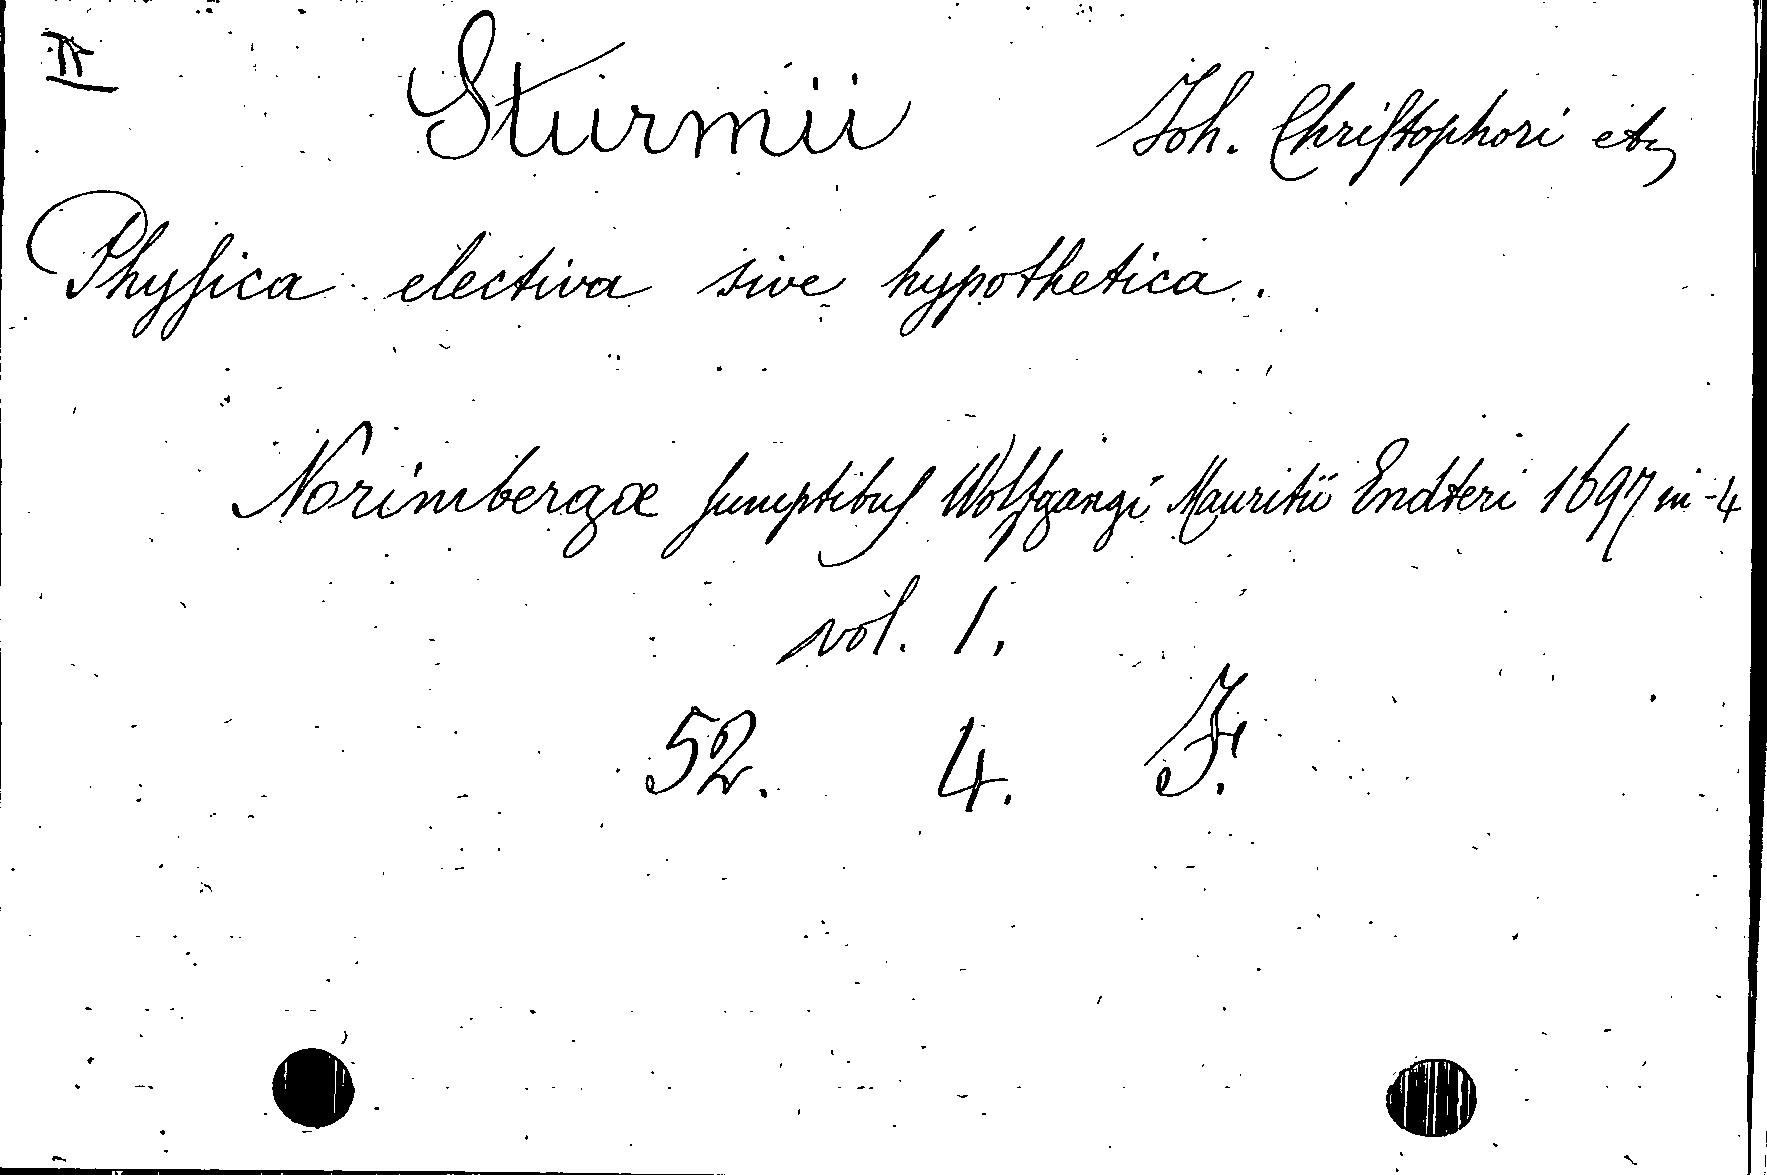 II
Sturmii Joh. Christophori etc
Phyſica electiva sive hypothetica.
Norimbergæ ſumptibuſ Wolfgangi Mauritii Endteri 1697 in-4
vol. 1.
52. 4. F.